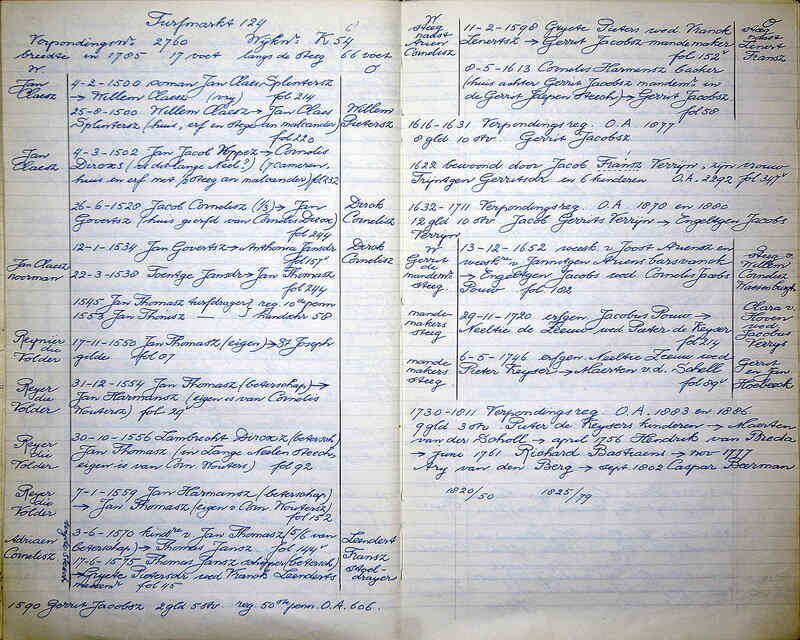 Turfmarkt 124
Verpondingsnr. 2760 Wijknr. K 54 c
breedte in 1785 17 voet langs de steeg 66 voet
W. O
Jan
Claesz
4-2-1500 soman Jan Claes Splintersz
→ Willem Claesz (vrij) fol 214
25-8-1500 Willem Claesz → Jan Claes
Splintersz (huis, erf en stege an malcander)
fol 220
Willem
Pietersz
Jan
Claesz
4-3-1502 Jan Jacob → Cornelis
Diroxs (is de lange Neel?) (7 cameren
huis en erf met ½ steeg an malcander) fol 232
26-6-1528 Jacob Cornelisz (½) → Jan
Govertsz (huis geerfd van Cornelis Dirox)
fol 244
Dirck
Cornelisz
12-1-1534 Jan Govertsz → Anthonia Jansdr
fol 157v
Dirck
Cornelisz
Jan Claesz
noorman
22-3-1538 Toentge Jansdr → Jan Thomasz
fol 244
1545 Jan Thomasz turfdrager reg 10e penn
1553 Jan Thomsz — handschr 58
Reynier
die
Volder
17-11-1550 Jan Thomasz (eigen) → St Joseph
gilde fol 07
Reyer
die
Volder
31-12-1554 Jan Thomasz (beterschap) →
Jan Harmansz (eigen is van Cornelis
Woutersz) fol 29v
Reyer
die
Volder
30-10-1556 Lambrecht Diroxz (betersch)
Jan Thomasz (in dlange Neelen steech
eigen is van Corn Wouters) fol 92
Reyer
die
Volder
7-1-1559 Jan Harmansz (beterschap)
→ Jan Thomasz (eigen v Corn Woutersz)
fol 152
Adriaen
Cornelisz
3-6-1570 kindren v Jan Thomasz (5/6 van
beterschap) → Thomas Jansz fol 144v
17-6-1575 Thomas Jansz schipper (betersch)
→ Gryete Pietersdr wed Vranck Leenderts
fol 45
Leendert
Fransz
stoel-
drayer
1590 Gerrit Jacobsz 2 gld 5 str. reg. 50ste penn. O.A. 606.
W
steeg
naast
Arien
Cornelisz
11-2-1598 Gryete Pieters wed Vranck
Lenertsz → Gerrit Jacobsz mandemaker
fol 152v
O
steeg
naast
Lenert
Fransz
8-5-1613 Cornelis Harmensz backer
(huis achter Gerrit Jacobsz mandem's in
de Gerrit Jaspen Steech) → Gerrit Jacobsz
fol 58
1616-1631 Verpondings reg. O.A. 1877
8 gld 10 str Gerrit Jacobsz
1622 bewoond door Jacob Fransz Verryn, zijn vrouw
Trijntgen Gerritsdr en 6 kinderen O.A. 2292 fol 317v
1632-1711 Verpondings reg. O.A 1878 en 1880
12 gld 10 str Jacob Gerrits Verrijn → Engeltgen Jacobs
Verryn
W
Gerrit
de
mandem's
steeg
13-12-1652 weesk. v Joost Ariensz en
weeskre v Jannetgen Ariens barsvanck
→ Engeltgen Jacobs wed Cornelis Jacobs
Pouw fol 182
steeg v.
Willem
Cornelisz
Wassenburgh
mande
makers
steeg
29-11-1720 erfgen. Jacobus Pouw →
Neeltie de Leeuw wed Pieter de Keyser
fol 214
Clara v.
Hoven
wed
Jacobus
Verryt
mande
makers
steeg
6-5-1746 erfgen. Neeltie Leeuw wed
Pieter Keyser → Maerten v.d. Scholl
fol 89v
Gerrit
en Jan
Hoebeeck
1730-1811 Verpondings reg. O.A. 1883 en 1886
9 gld 3 str Pieter de Keysers kinderen → Maerten
van der Scholl → april 1756 Hendrik van Breda
→ junij 1761 Richard Bastiaens → nov 1777
Ary van den Berg → sept 1802 Caspar Boerman
1820/50 1825/79